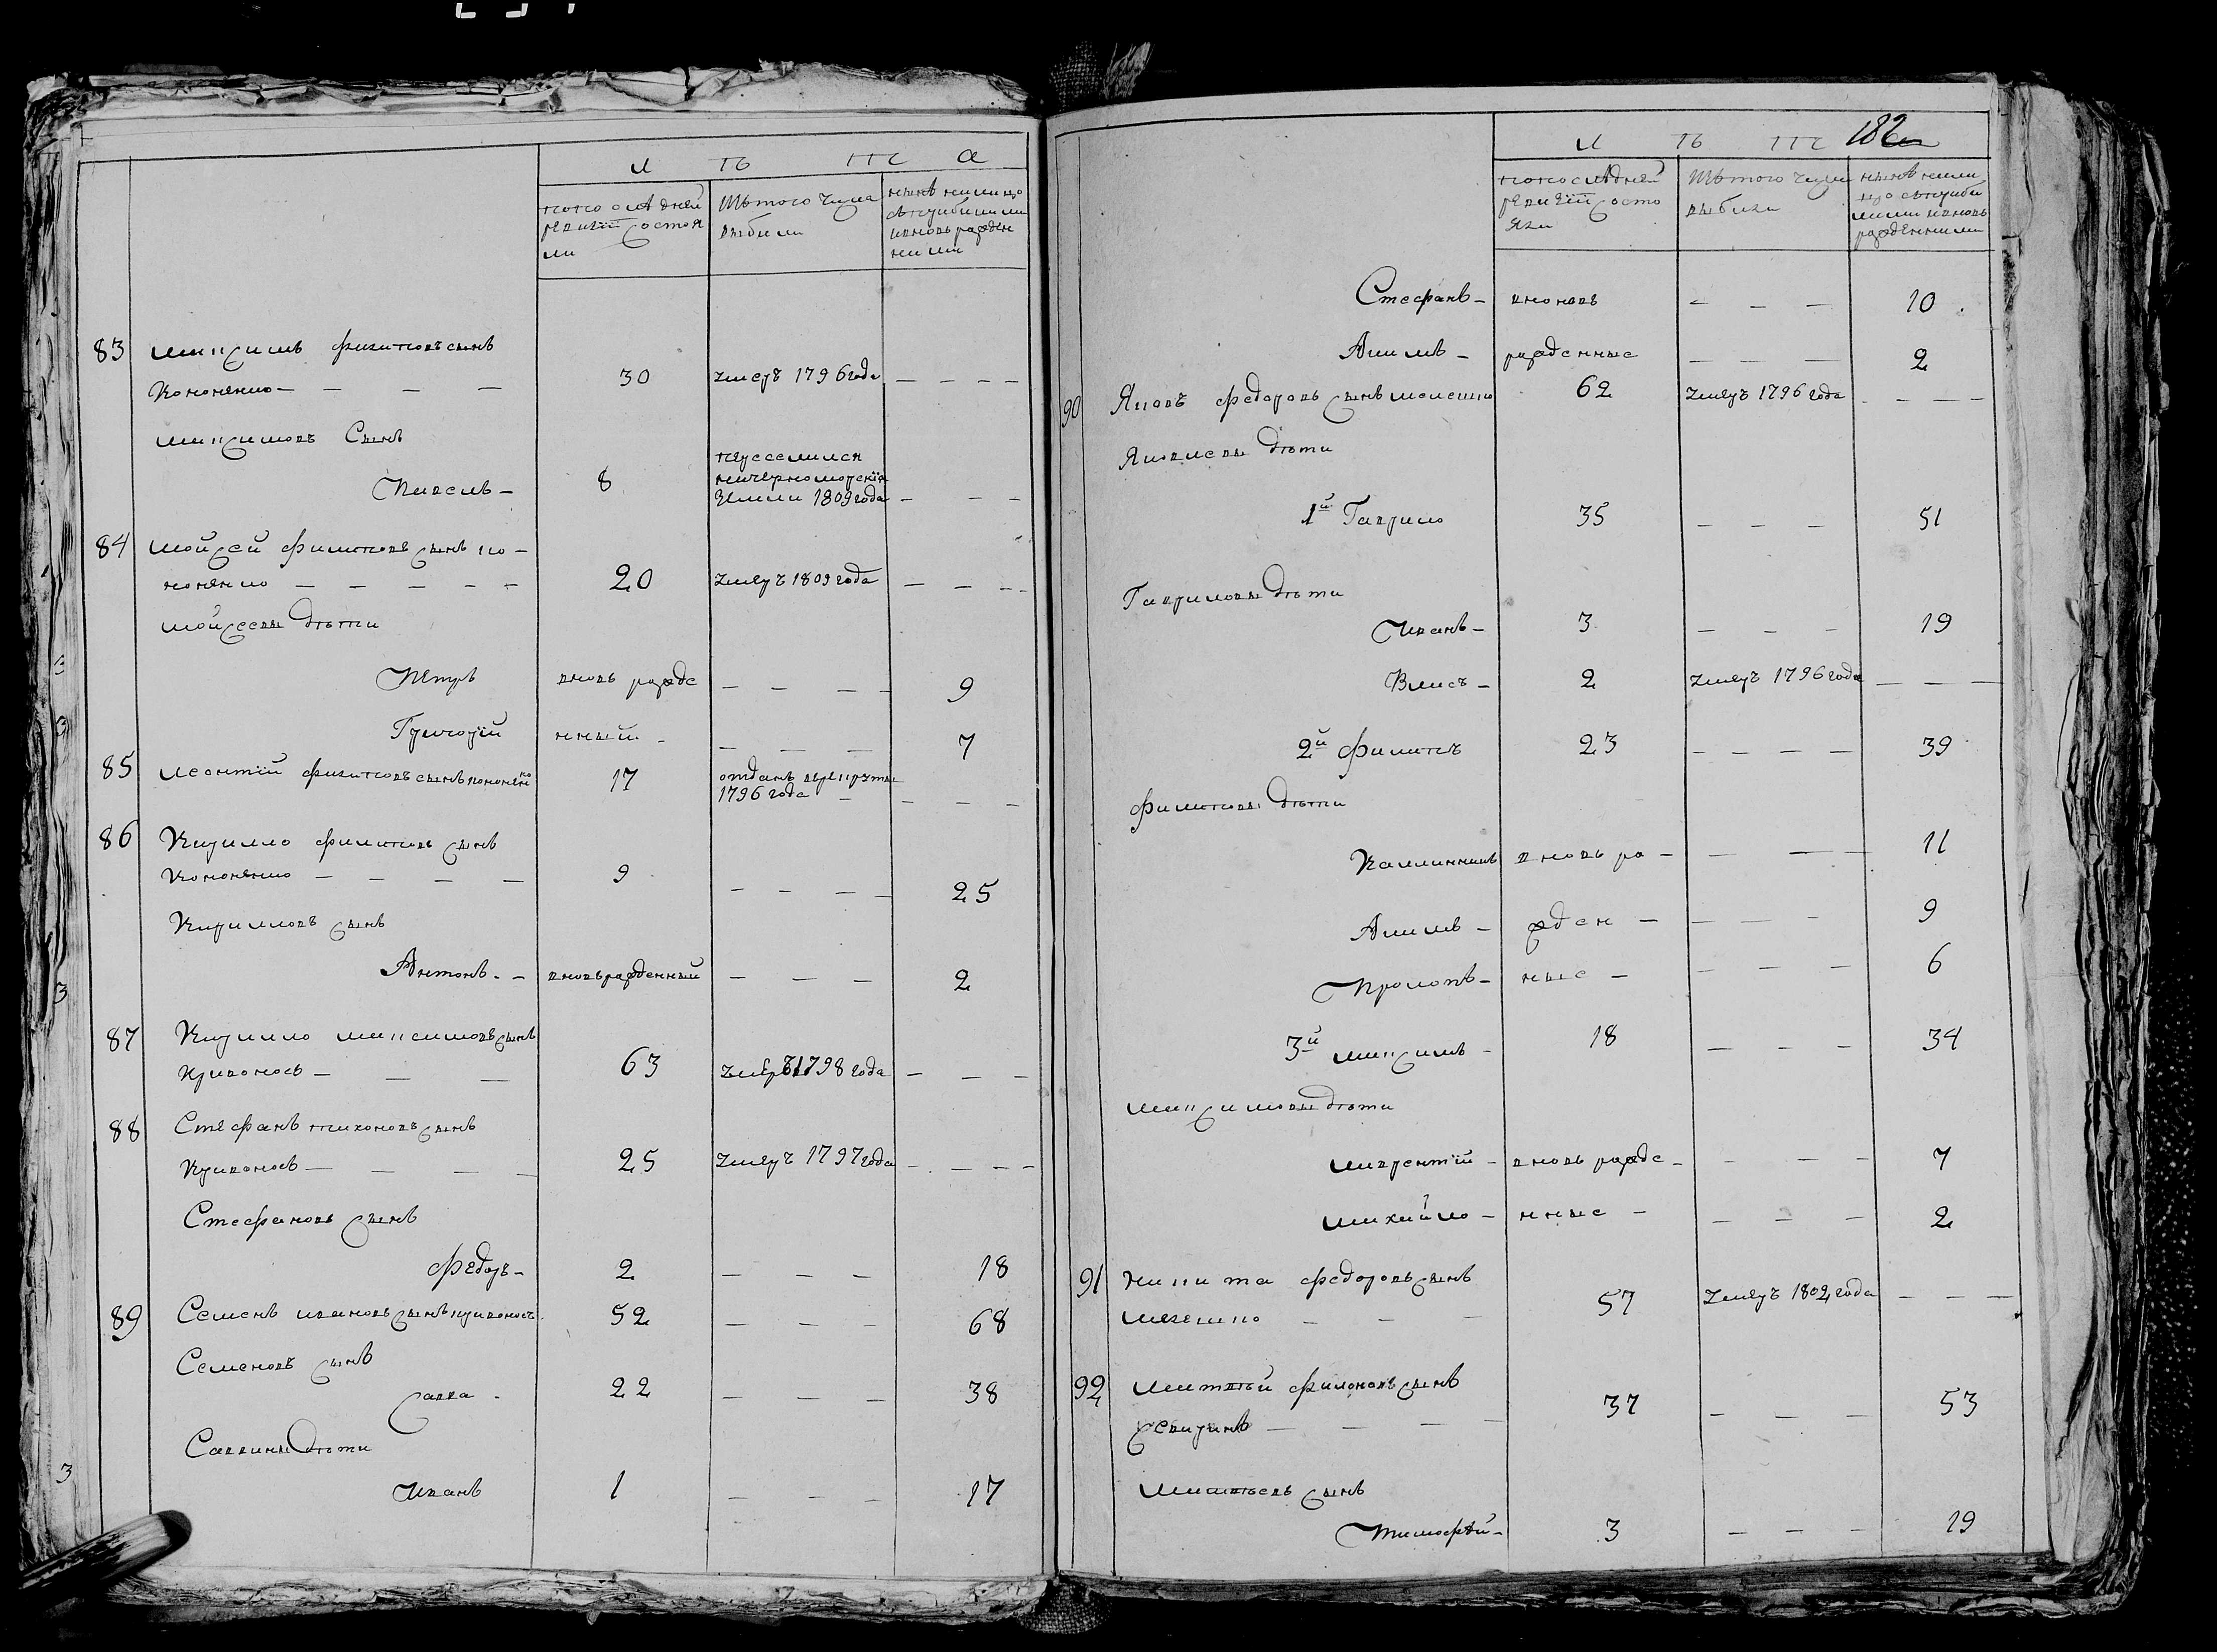 лѣта
попослѣдней ревизїи состояли
изътого числа выбыли
нынѣ налицо съприбылыми ивновь рожденными
83 Максимъ филиповъ сынъ
Кононенко — — — 30 умеръ 1796 года — — — —
Максимовъ Сынъ
Павелъ — 8 переселился
начерноморскїя
земли 1809 года — — —
84 Мойсей филиповъ сынъ ко-
ноненко — — — — — 20 умеръ 1809 года — — — —
Мойсеевы дѣти
Петръ вновь рожде — — — — 9
Григорїй нный - — — — 7
85 Леонтїй филиповъ сынъ кононенко 17 отданъ врекруты
1796 года — — — —
86 Кирилло филиповъ сынъ
Кононенко — — — — 9 — — — — 25
Кириловъ сынъ
Антонъ - — вновьрожденный — — — 2
87 Кирилло максимовъ сынъ
кривоносъ — — — 63 умеръ 1798 года — — —
88 Стефанъ тихоновъ сынъ
Кривоносъ — — — — 25 умеръ 1797 года — — — —
Стефановъ сынъ
Федоръ — 2 — — — 18
89 Семенъ ивановъ сынъ кривоносъ 52 — — — 68
Семеновъ сынъ
Савва - 22 — — — 38
Саввины дѣти
Иванъ 1 — — — 17
182
лѣта
попослѣдней ревизїи состояли
изътого числа выбыли
нынѣ налицо съприбылыми ивновь рожденными
Стефанъ — вновь — — — 10
Акимъ — рожденные — — — 2
90 Яковъ федоровъ сынъ мелешко 62 умеръ 1796 года - — — —
Яковлевы дѣти
1й Гаврило 35 — — — 51
Гавриловы дѣти
Иванъ — 3 — — — 19
Власъ — 2 умеръ 1796 года — — —
2й филипъ 23 — — — — 39
филиповы дѣти
Каллиникъ вновь ро — — — — 11
Акимъ — жден — — — — 9
Прокопъ — ные — — — — 6
3й максимъ - 18 — — — 34
максимовы дѣти
лаврентїй — вновь рожде — - — — 7
михайло — нные — — — — 2
91 никита федоровъ сынъ
мелешко — — — 57 умеръ 1802 года — — —
92 матвѣй филоновъ сынъ
северинъ — — — — 37 — — — 53
матвѣевъ сынъ
Тимофѣй — 3 — — — 19